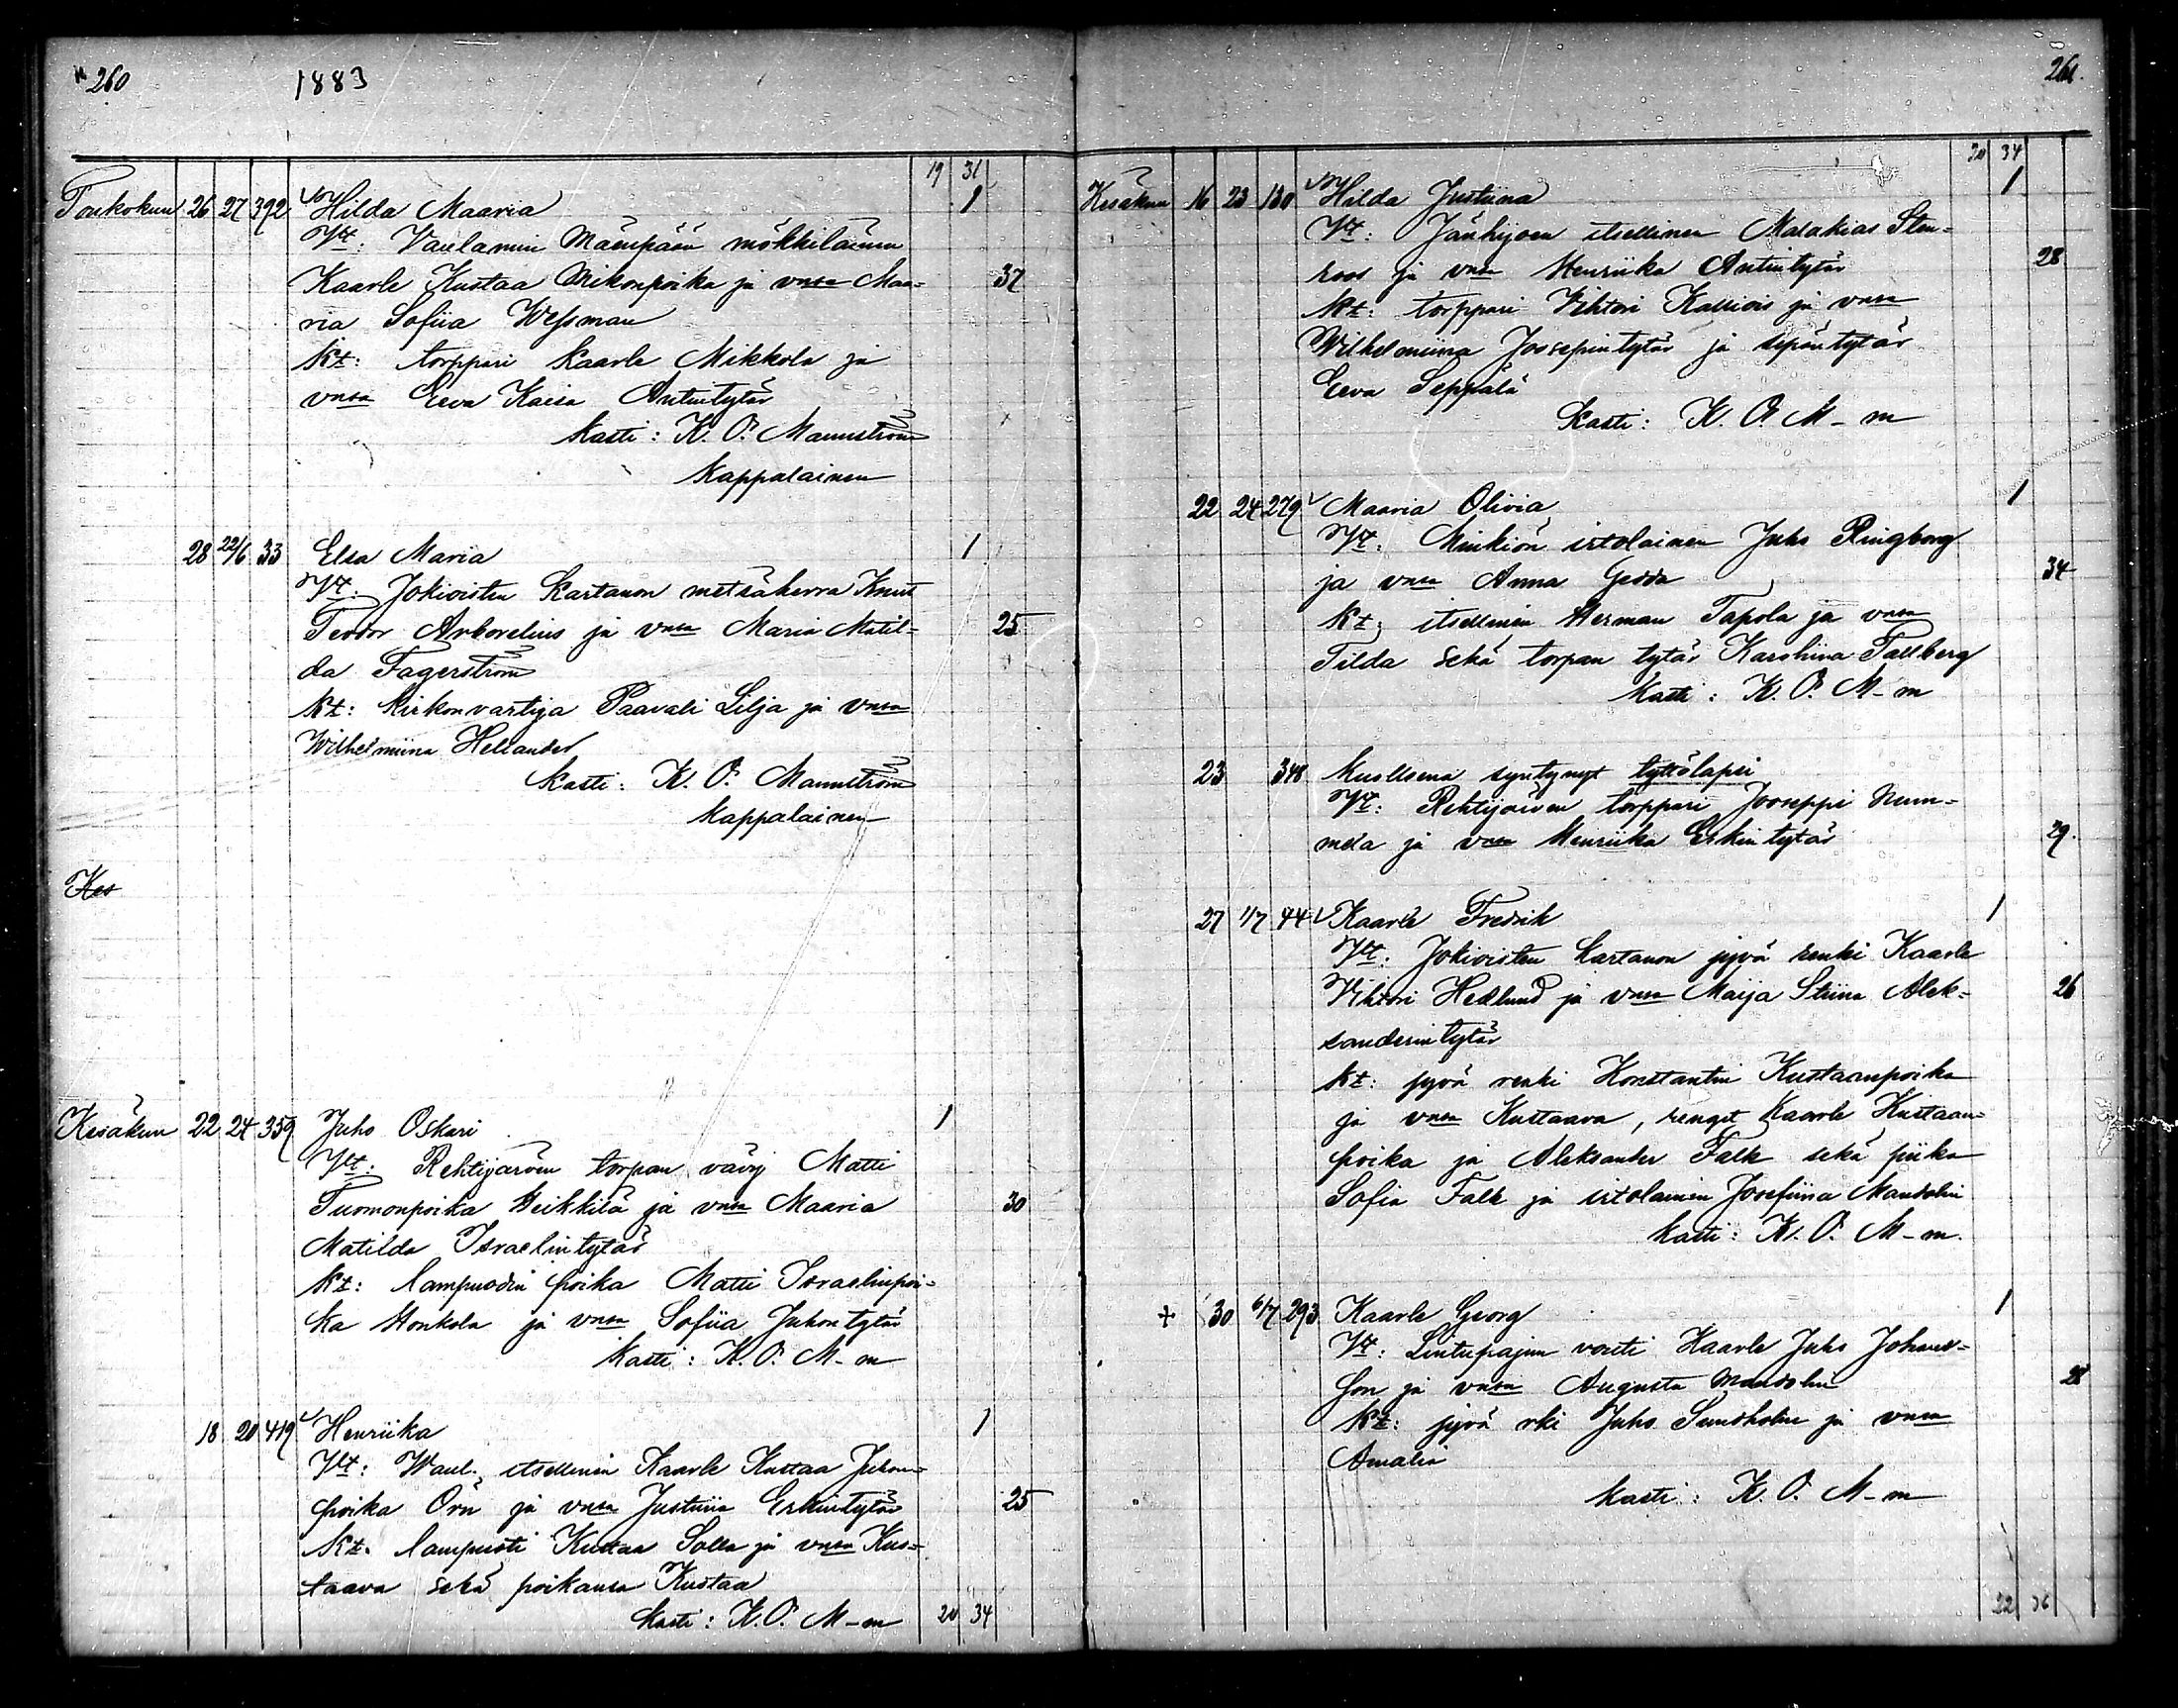 260 1883
19 31
Toukokuu 26 27 392 Hilda Maaria 1
Vt: Vaulammin Mäenpään mökkiläinen
Kaarle Kustaa Mikonpoika ja vnsa Maa= 37
ria Sofiia Wessman
Kt: torppari Kaarle Mikkola ja
vnsa Eeva Kaisa Antintytär
Kasti: K. O. Mannström
Kappalainen
28 22/6 33 Elsa Maria 1
Vt: Jokioisten Kartanon metsäherra Knut
Teodor Arborelius ja vnsa Maria Matil= 25
da Fagerström
Kt: Kirkonvartija Paavali Lilja ja vnsa
Wilhelmiina Helander
Kasti: K. O. Mannström
Kappalainen
Kes
Kesäkuu 22 24 359 Juho Oskari 1
Vt: Rehtijärven torpan vävy Matti
Tuomonpoika Heikkilä ja vnsa Maaria 30
Matilda Israelintytär
Kt: lampuodin poika Matti Israelinpoi=
ka Honkola ja vnsa Sofiia Juhontytär
Kasti: K. O. M-m
18 20 419 Henriika 1
Vt: Waul. itsellinen Kaarle Kustaa Juhon=
poika Örn ja vnsa Justiina Erkintytär 25
Kt. lampuoti Kustaa Solla ja vnsa Kus=
taava sekä poikansa Kustaa
Kasti: K. O. M-m 20 34
261.
20 34
Kesäkuu 16 23 130 Hilda Justiina 1
Vt: Jänhijoen itsellinen Malakias Sten=
roos ja vnsa Henriika Antintytär 28
Kt: torppari Vihtori Kallios ja vnsa
Wilhelmiina Joosepintytär ja sepäntytär
Eeva Seppälä
Kasti: K. O. M-m
22 24 279 Maaria Olivia 1
Vt: Minkiön irtolainen Juho Ringborg
ja vnsa Anna Gedda 34
Kt: itsellinen Herman Tapola ja vnsa
Tilda sekä torpan tytär Karoliina Tallberg
Kasti: K. O. M-m
23 348 Kuolleena syntynyt tyttölapsi
Vt: Rehtijärven torppari Jooseppi Num=
mela ja vnsa Henriika Erkintytär 29.
27 1/7 44 Kaarle Fredrik 1
Vt: Jokioisten Kartanon jyvä renki Kaarle
Vihtori Hedlund ja vnsa Maija Stiina Alek= 26
sanderintytär
Kt: jyvä renki Konstantin Kustaanpoika
ja vnsa Kustaava, rengit Kaarle Kustaan=
poika ja Aleksander Falk sekä piika
Sofia Falk ja irtolainen Josefiina Mandolin
Kasti: K. O. M-m.
+ 30 6/7 293 Kaarle Georg 1
Vt: Lintupajun vouti Kaarle Juho Johans=
son ja vnsa Augusta Mandolin 28
Kt: jyvä rki Juho Sundholm ja vnsa
Amalia
Kasti: K. O. M-m
22 36